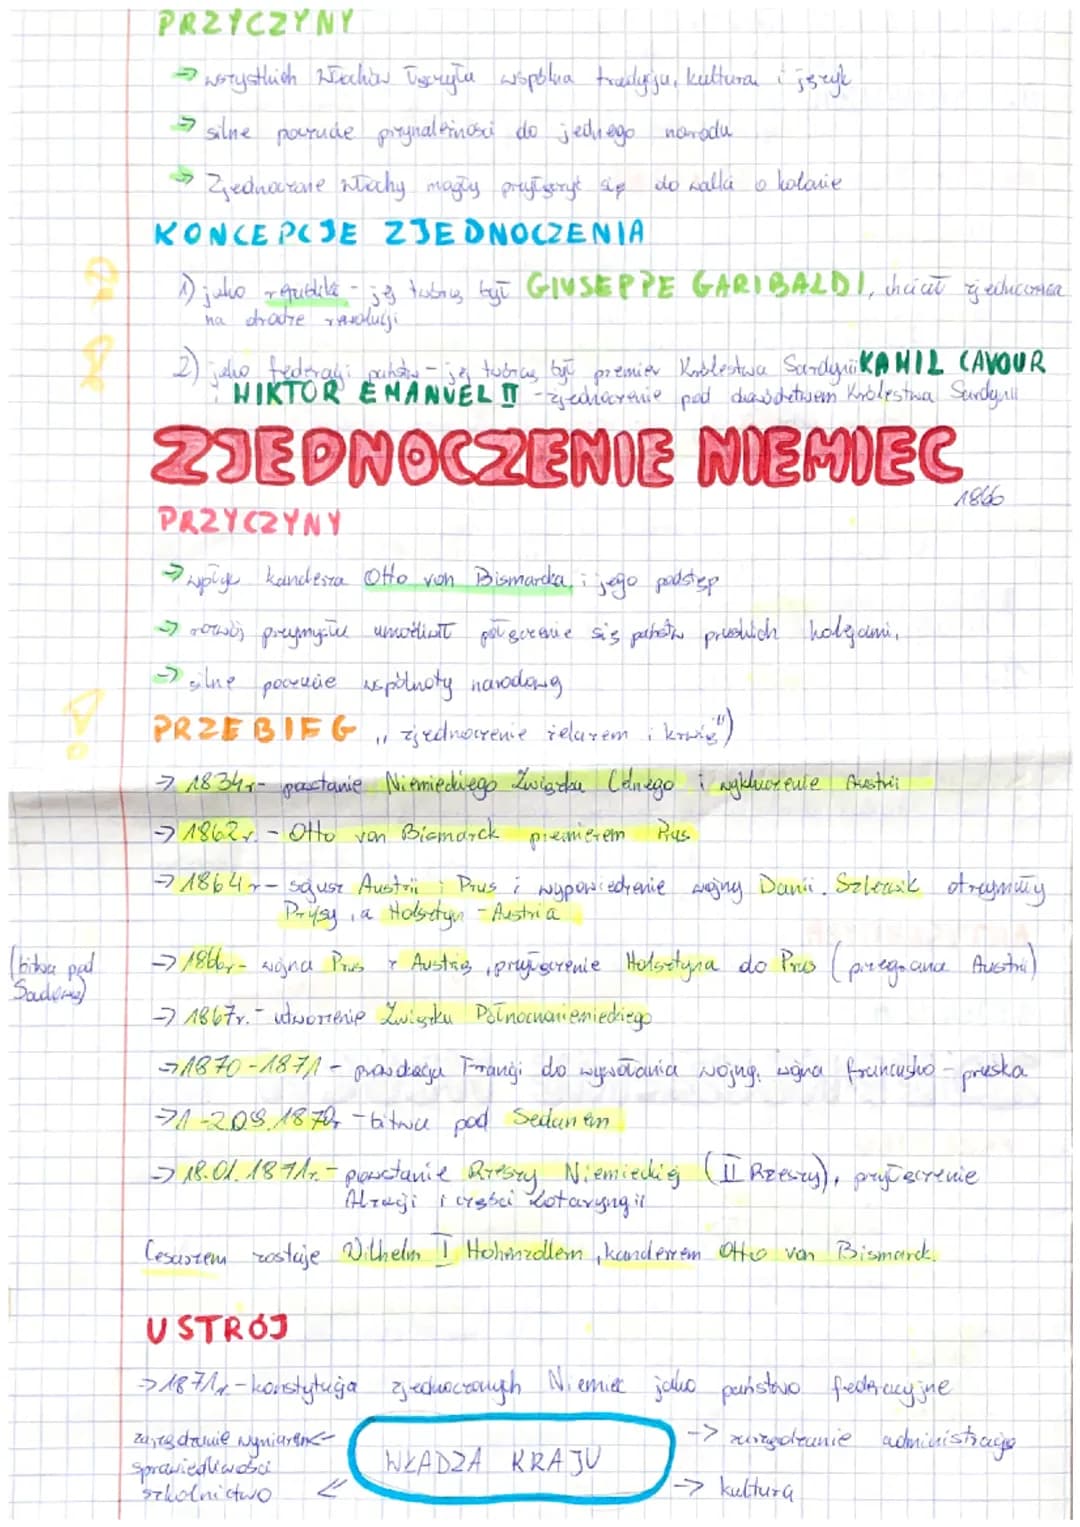 PRZYCZYNY
→ wszystkich Włochów łączyła wspólna tradycja, kultura i język
→ silne poczucie przynależności do jednego narodu
→ Zjednoczone Włochy mogły przyłączyć się do walki o kolonie
KONCEPCJE ZJEDNOCZENIA
1) jako republika - jej twórcą był GIUSEPPE GARIBALDI, chciał zjednoczenia
na drodze rewolucji
2) jako federacji państw - jej twórcą był premier Królestwa Sardynii KAMIL CAVOUR
WIKTOR EMANUEL II - zjednoczenie pod dowództwem Królestwa Sardynii
ZJEDNOCZENIE NIEMIEC
1866
PRZYCZYNY
→ wpływ kanclerza Otto von Bismarcka i jego podstęp
→ rozwój przemysłu umożliwił połączenie się państw pruskich kolejami,
→ silne poczucie wspólnoty narodowej
PRZEBIEG „zjednoczenie żelazem i krwią")
→ 1834r - powstanie Niemieckiego Związku Celnego i wykluczenie Austrii
→ 1862r. - Otto von Bismarck premierem Prus
→ 1864r - sojusz Austrii i Prus i wypowiedzenie wojny Danii. Szlezwik otrzymały
Prusy, a Holsztyn - Austria
(bitwa pod
Sadową)
→ 1866r - wojna Prus z Austrią, przyłączenie Holsztyna do Prus (przegrana Austrii)
→ 1867r. - utworzenie Związku Północnoniemieckiego
→ 1870-1871 - prowokacja Francji do wywołania wojny, wojna francusko-pruska
→ 1-2.09.1870r - bitwa pod Sedanem
→ 18.01.1871r. - powstanie Rzeszy Niemieckiej (II Rzeszy), przyłączenie
Alzacji i części Lotaryngii
Cesarzem zostaje Wilhelm I Hohenzollern, kanclerzem Otto von Bismarck.
USTRÓJ
→ 1871r. - konstytucja zjednoczonych Niemiec jako państwo federacyjne
zarządzanie wymiarem ←
sprawiedliwości
szkolnictwo ↙
WŁADZA KRAJU
→ zarządzanie administracją
→ kulturą